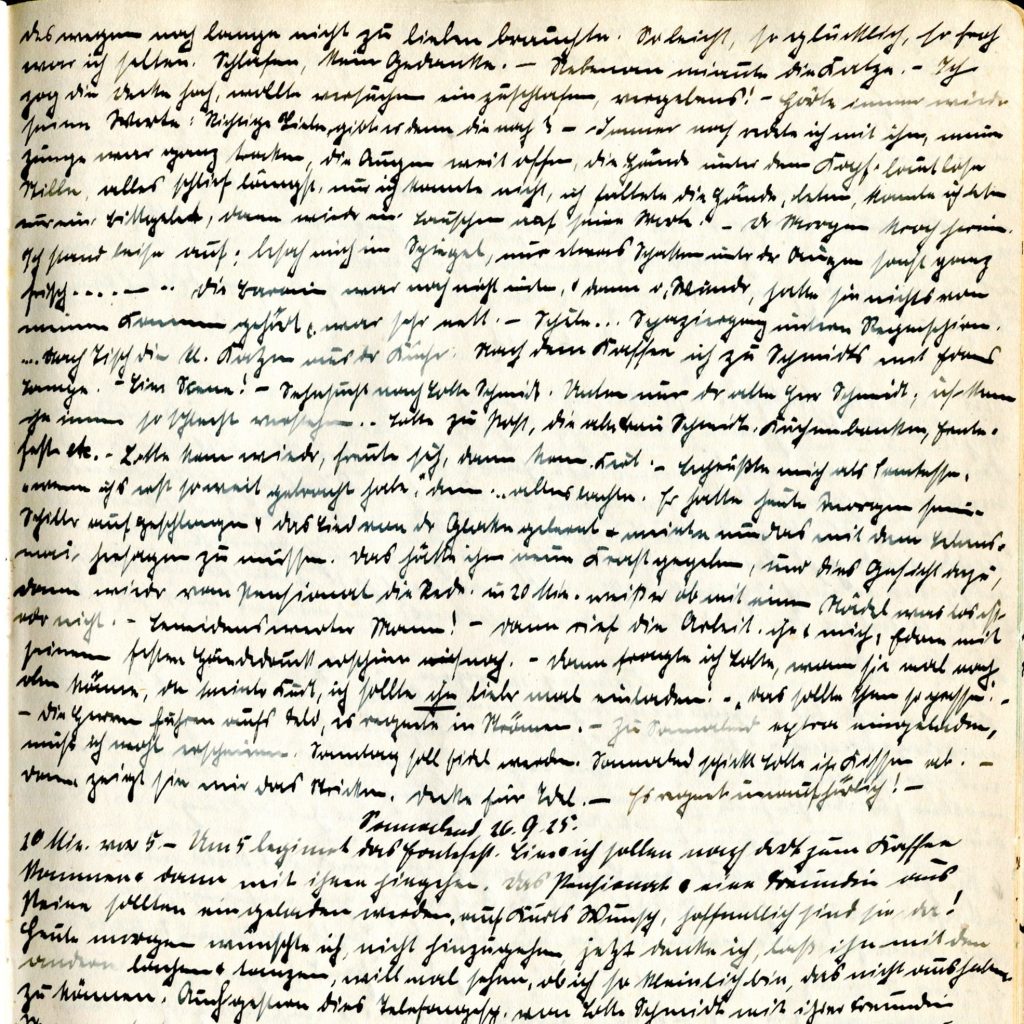 deswegen noch lange nicht zu lieben brauchte. So leicht, so glücklich, so froh
war ich selten. Schlafen, kein Gedanke. – Nebenan miaute die Katze. – Ich
zog die Decke hoch, wollte versuchen einzuschlafen, vergebens! – Hörte immer wieder
seine Worte: Richtige Liebe, gibt es denn die noch? – Immer noch redete ich mit ihm, meine
Zunge war ganz trocken, die Augen weit offen, die Hände unter dem Kopf. Lautlose
Stille, alles schlief längst, nur ich konnte nicht, ich faltete die Hände, beten, konnte ich beten
nur ein Bittgebet, dann wieder ein Lauschen auf seine Worte. – Der Morgen kroch herein.
Ich stand leise auf; besah mich im Spiegel, nur etwas Schatten unter den Augen sonst ganz
frisch....–.. Die Baronin war noch nicht unten, dann o, Wunder, hatte sie nichts von
meinem Kommen gehört, war sehr nett. – Schule... Spaziergang unterm Regenschirm.
... Nach Tisch die kl. Katzen aus der Küche. Nach dem Kaffee ich zu Schmidts mit
Lange. – Scene! – Sehnsucht nach Lotte Schmidt. Unten nur der alte Herr Schmidt, ich kann
ihn immer so schlecht verstehen.. Lotte zu Post, die alte Frau Schmidt. Kuchenbacken, Ernte-
feste etc. – Lotte kam wieder, freute sich, dann kam Kurt. – begrüßte mich als Comtesse,
"wenn ichs erst so weit gebracht habe," denn .. alles lachte. Er hatte heute Morgen seinen
Schiller aufgeschlagen & das Lied von der Glocke gelernt & meinte nun das mit dem Lebens-
mai, hersagen zu müssen. Das hätte ihm neue Kraft gegeben, und dies Gesicht dazu,
dann wieder vom Pensionat die Rede. in 20 Min. weiß er ob mit einem Mädel was los ist
oder nicht. – Beneidenswerter Mann! – Dann rief die Arbeit. mich, mit
seinem festen Händedruck noch. – Dann fragte ich Lotte, wann sie mal nach
oben käme, da meinte Kurt, ich sollte ihn lieber mal einladen! – "das sollte Ihnen so passen"! –
– Die Herren fuhren aufs Feld, es regnete in Strömen. – Zu Sonnabend extra eingeladen,
muß ich wohl erscheinen. Sonntag soll fidel werden. Sonnabend schickt Lotte ihr Kissen ab. –
dann zeigt sie mir das Stricken. Decke für Idel. – Es regnet unaufhörlich! –
Sonnabend, 26.9.25.
10 Min. vor 5 – Um 5 beginnt das Erntefest. ich sollen nach dort zum Kaffee
kommen & dann mit ihnen hingehen. Das Pensionat & eine Freundin aus
Peine sollten eingeladen werden, auf Kurts Wunsch, hoffentlich sind sie da!
Heute morgen wünschte ich, nicht hinzugehen, jetzt denke ich, laß ihn mit den
andern lachen & tanzen, will mal sehen, ob ich so kleinlich bin, das nicht aushalten
zu können. Auch gestern dies Telefongespr. von Lotte Schmidt mit ihrer Freundin